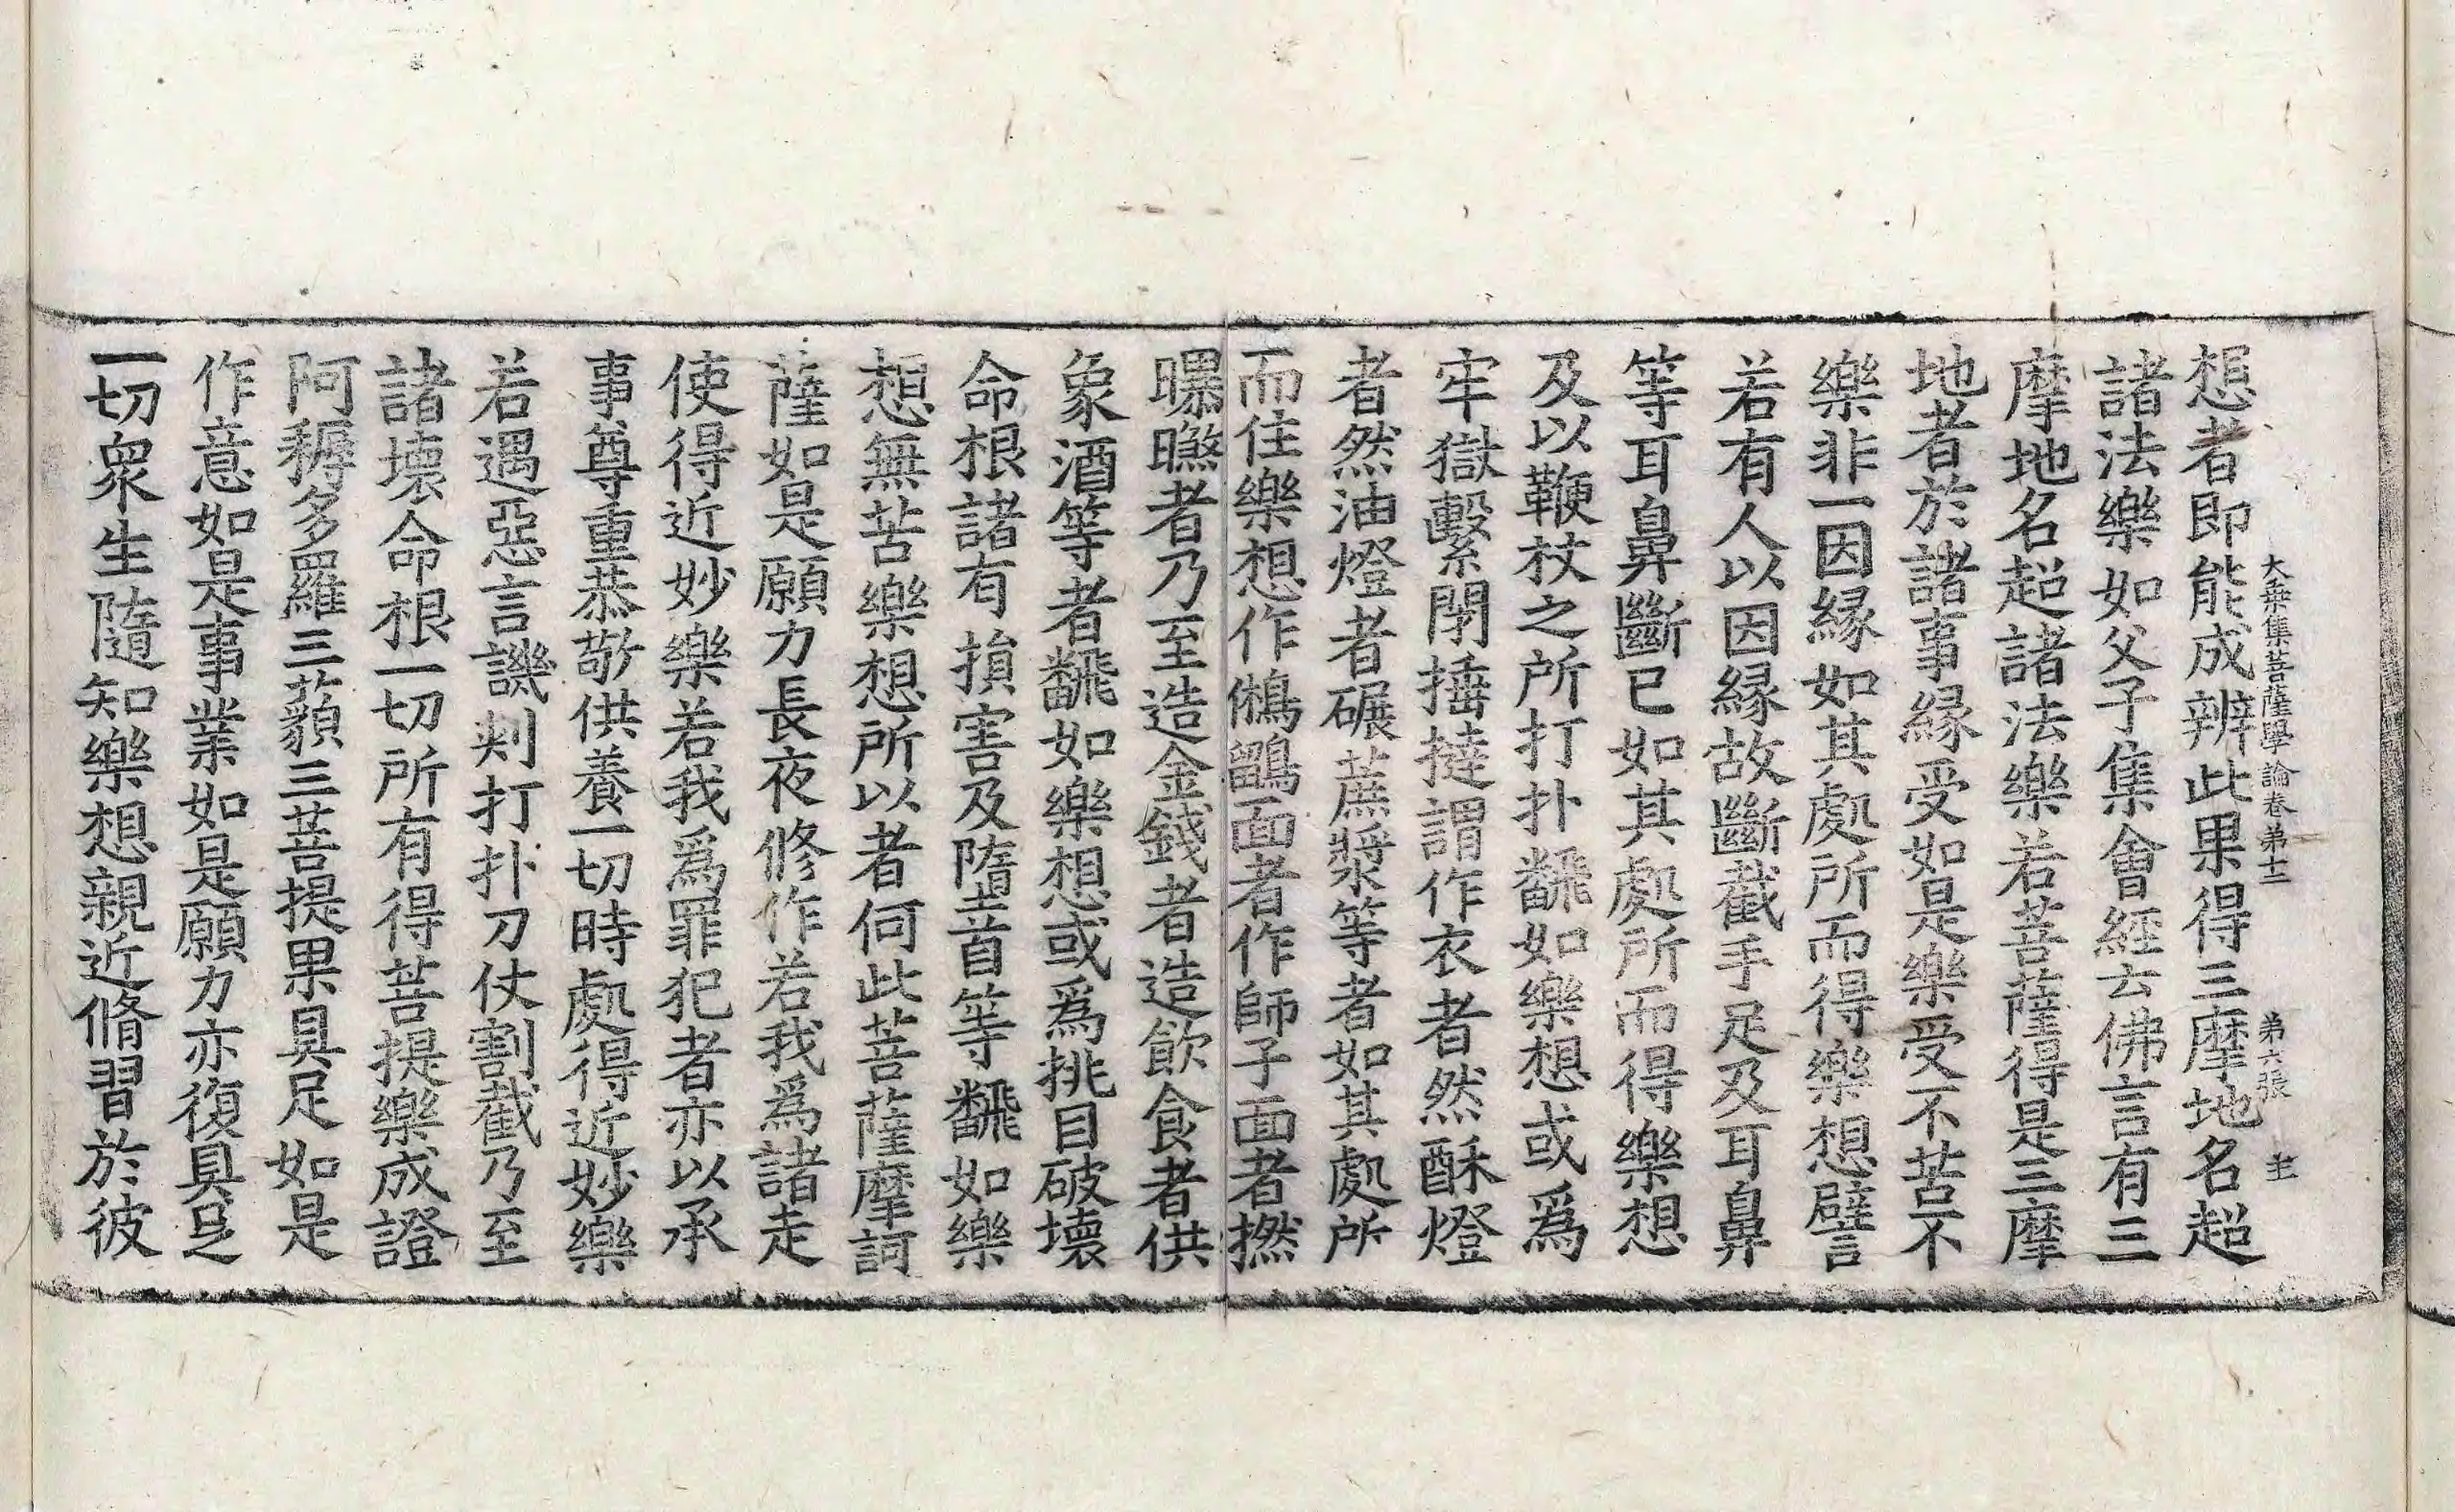 大乗集菩薩學論卷第十二 第六張 主
想者即能成辨此果得三摩地名超
諸法樂如父子集會經云佛言有三
摩地名超諸法樂若菩薩得是三摩
地者於諸事緣受如是樂受不苦不
樂非一因緣如其處所而得樂想譬
若有人以因緣故斷截手足及耳鼻
等耳鼻斷已如其處所而得樂想
及以鞭杖之所打扑飜如樂想或爲
牢獄繫閉捶撻謂作衣者然酥燈
者然油燈者碾蔗漿等者如其處所
而住樂想作鵂鶹面者作師子面者撚
曝㬠者乃至造金錢者造飲食者供
象酒等者飜如樂想或爲挑目破壞
命根諸有損害及墮首等飜如樂
想無苦樂想所以者何此菩薩摩訶
薩如是願力長夜修作若我爲諸走
使得近妙樂若我爲罪犯者亦以承
事尊重恭敬供養一切時處得近妙樂
若遇惡言譏刾打扑刀仗割截乃至
諸壞命根一切所有得菩提樂成證
阿耨多羅三藐三菩提果具足如是
作意如是事業如是願力亦復具足
一切衆生隨知樂想親近脩習於彼